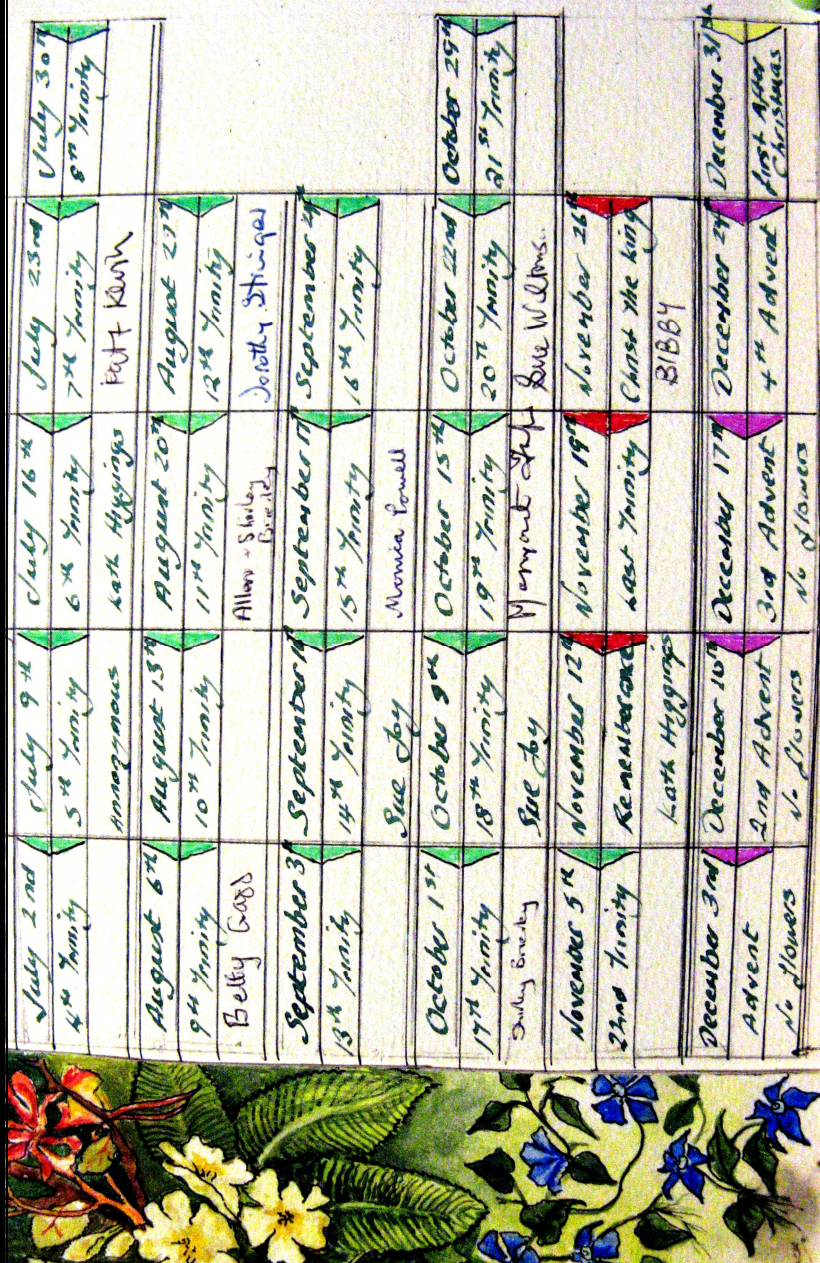 July 2nd July 9th July 16th July 23rd July 30th
4th Trinity 5th Trinity 6th Trinity 7th Trinity 8th Trinity
Annonymous Kath Higgings Pat + Kevin
August 6th August 13th August 20th August 27th
9th Trinity 10th Trinity 11th Trinity 12th Trinity
Betty Allan + Shirley Brierley Dorothy Stringer
September 3rd September 10th September 17th September 24th
13th Trinity 14th Trinity 15th Trinity 16th Trinity
Sue Joy Monica Powell
October 1st October 8th October 15th October 22nd October 29th
17th Trinity 18th Trinity 19th Trinity 20th Trinity 21st Trinity
Shirley Brierley Sue Joy Margaret Sue
November 5th November 12th November 19th November 26th
22nd Trinity Rememberance Last Trinity Christ the King
Kath Higgings BIBBY
December 3rd December 10th December 17th December 24th December 31st
Advent 2nd Advent 3rd Advent 4th Advent First After Christmas
No flowers No flowers No flowers